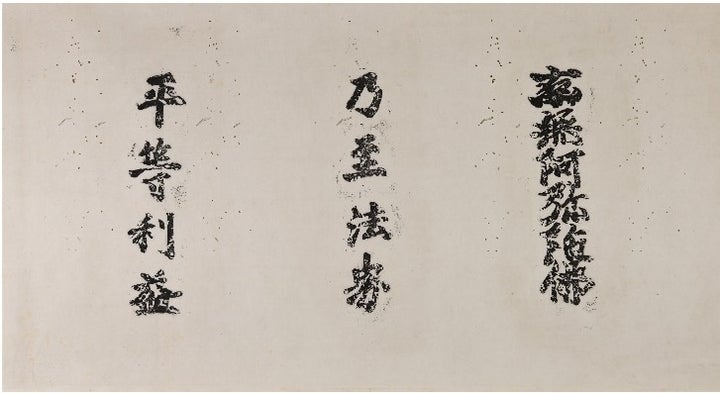 南無阿弥陀佛
乃至法界
平等利益